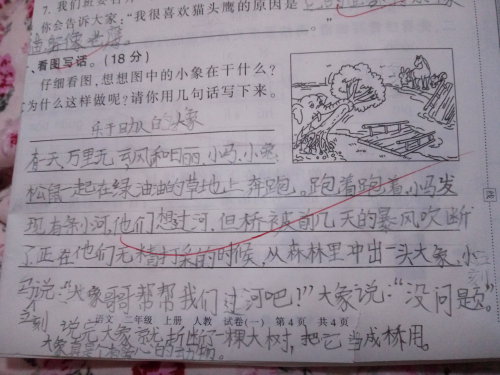 7. 我们班要召
你会告诉大家：“我很喜欢猫头鹰的原因是
”
、看图写话。(18分)
仔细看图，想想图中的小象在干什么？
为什么这样做呢？请你用几句话写下来。
乐于助人的大象
春天，万里无云，风和日丽，小马、小兔、
松鼠一起在绿油油的草地上奔跑。跑着跑着，小马发
现有条小河，他们想过河，但桥被前几天的暴风吹断
了正在他们无精打采的时候，从森林里冲出一头大象，小
马说：“大象哥哥帮帮我们过河吧！”大象说：“没问题。”
立刻
语文 二年级 上册 人教 试卷(一) 第4页 共4页
说完大象就折出了一棵大树，把它当成桥用。
大象真是个有爱心的动物。